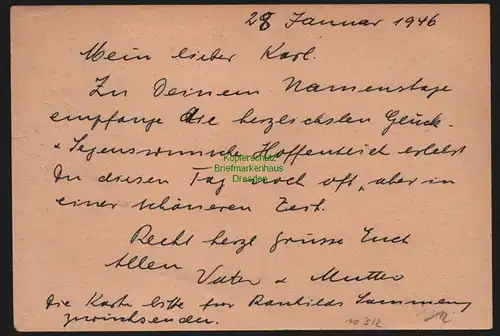 28 Januar 1946
Mein lieber Karl.
Zu Deinem Namenstage
empfange die herzlichsten Glück-
& Segenswünsche. Hoffentlich erlebst
Du diesen Tag noch oft, aber in
einer schöneren Zeit.
Recht herzl grüsse Euch
Allen
Vater & Mutter
Die Karte bitte für Sammlung
zurücksenden.
10312
Kopierschutz
Briefmarkenhaus
Dresden